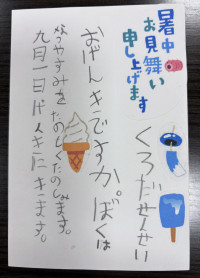 暑中
お見舞い
申し上げます
くろだせんせい
おげんきですか。ぼくは
なつやすみをたのしくたのしみます。
九月一日げんきにきます。